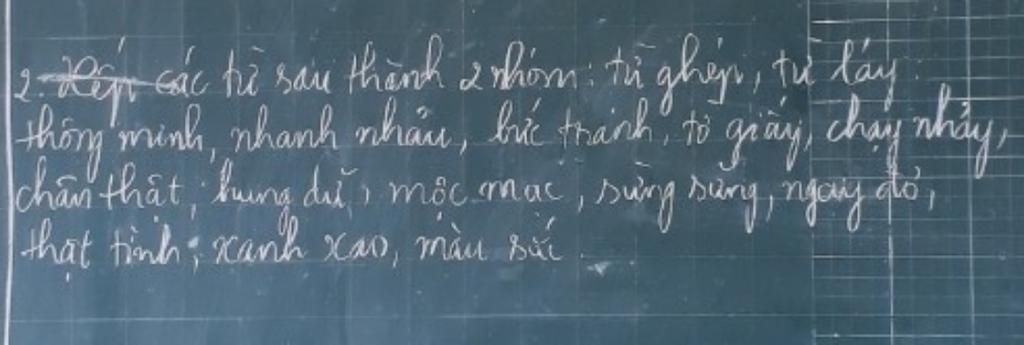 2. Xếp các từ sau thành 2 nhóm: từ ghép, từ láy.
thông minh, nhanh nhẩu, bức tranh, tờ giấy, chạy nhảy,
chân thật, hung dữ, mộc mạc, sừng sững, ngay đó,
thật tình, xanh xao, màu sắc